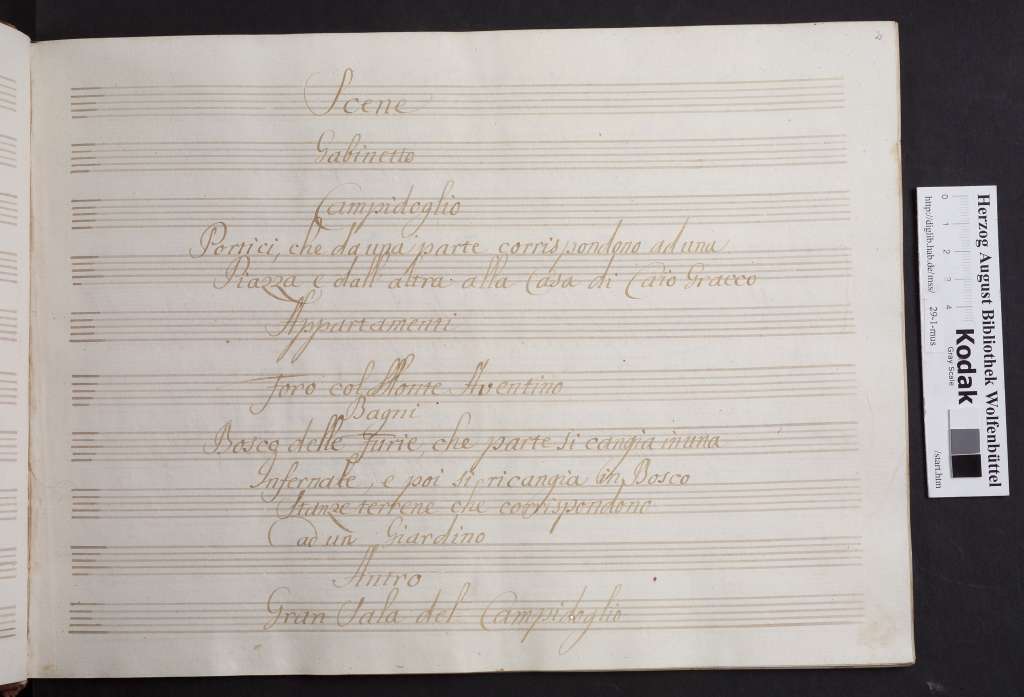 Scene
Gabinetto
Campidoglio
Portici, che da una parte corrispondono ad una
Piazza e dall' altra alla Casa di Caio Gracco
Appartamenti
Foro col Monte Aventino
Bagni
Bosco delle Furie, che parte si cangia in una
Infernale, e poi si ricangia in Bosco
Stanze terrene che corrispondono
ad un Giardino
Antro
Gran Sala del Campidoglio
Herzog August Bibliothek Wolfenbüttel
http://diglib.hab.de/mss/ 29-1-mus /start.htm
0 1 2 3 4
Kodak
Gray Scale